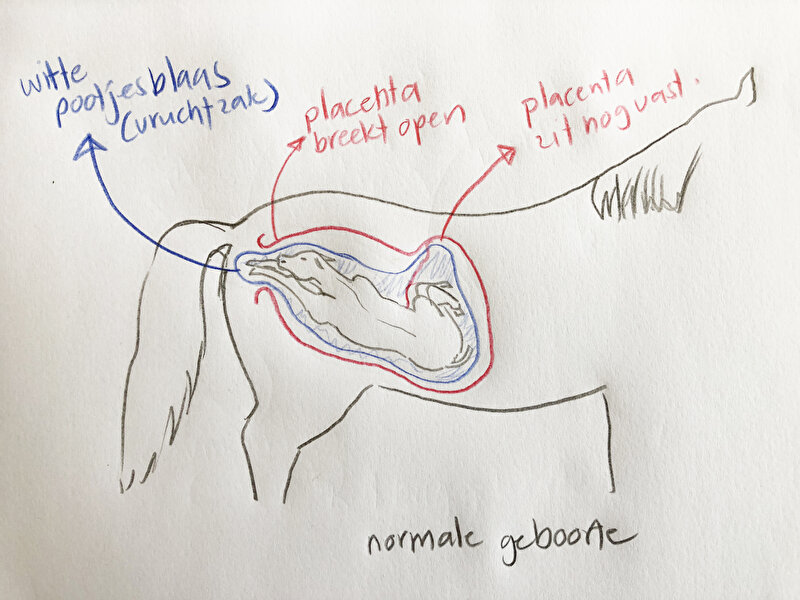 witte
pootjesblaas
(vruchtzak)
placenta
breekt open
placenta
zit nog vast.
normale geboorte